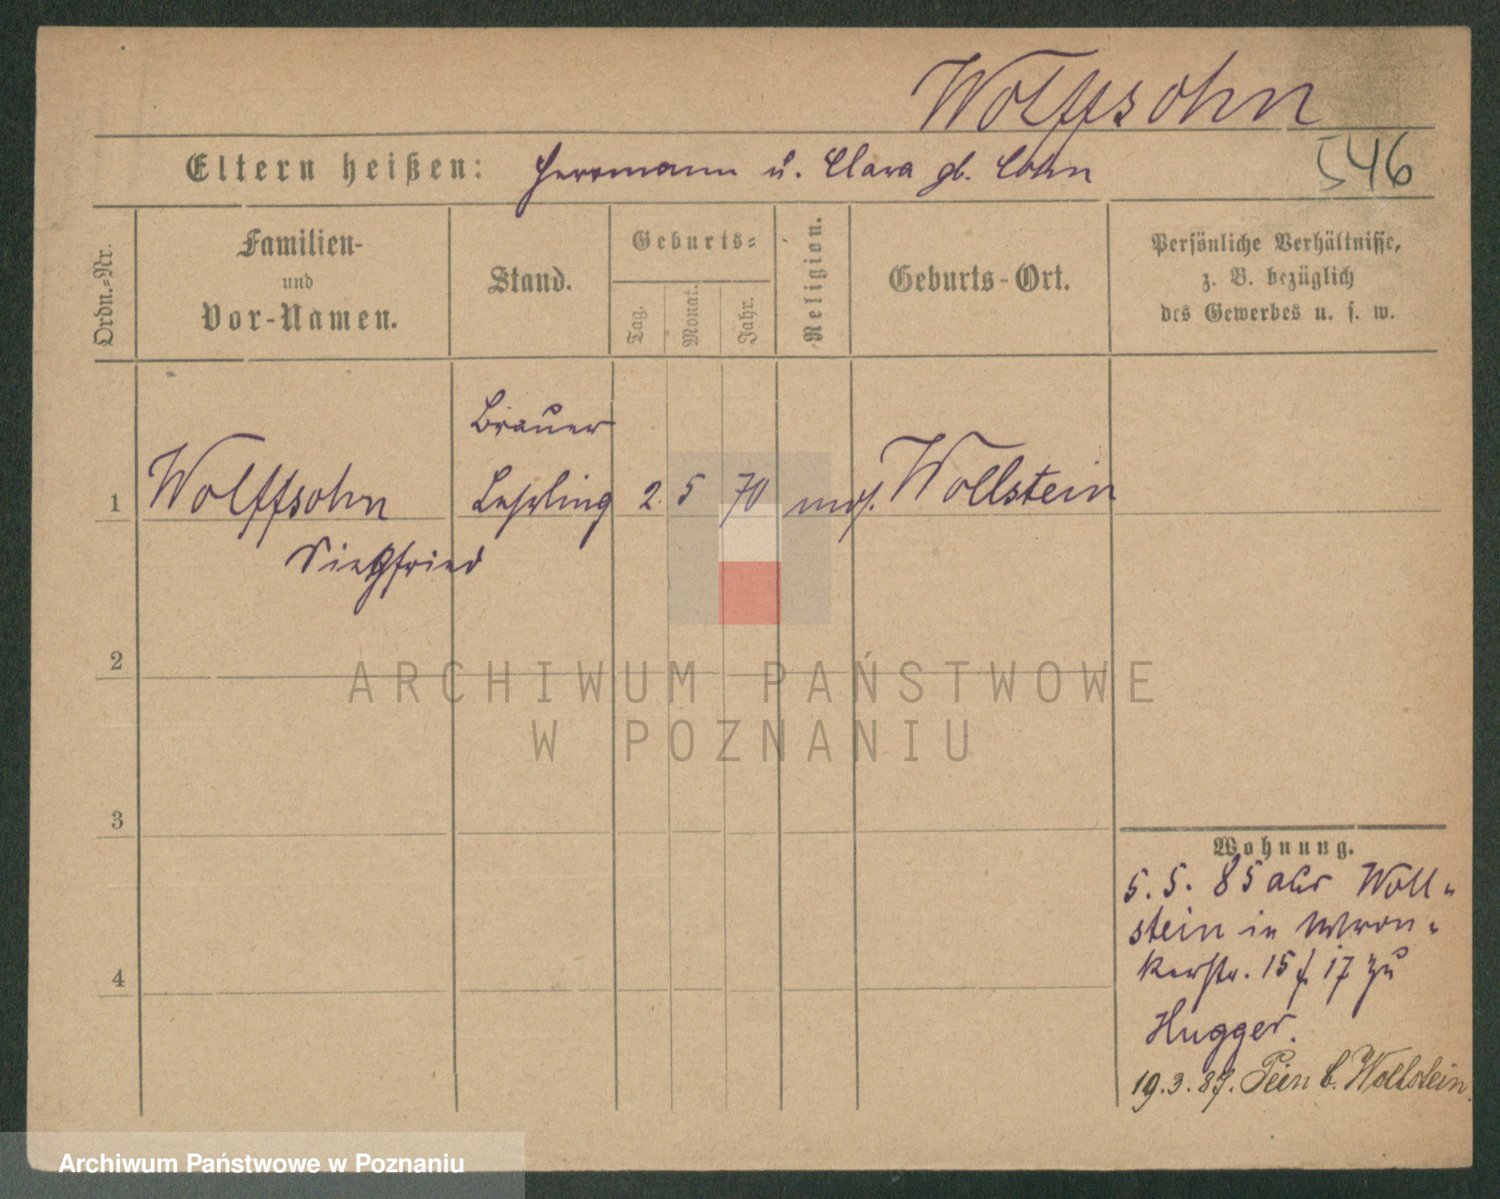 Wolffsohn
Eltern heißen: Herrmann u. Clara gb. Cohn
546
Ordn.-Nr.
Familien-
und
Vor-Namen.
Stand.
Geburts-
Tag.
Monat.
Jahr.
Religion.
Geburts-Ort.
Persönliche Verhältnisse,
z. B. bezüglich
des Gewerbes u. s. w.
Brauer
1 Wolffsohn Lehrling 2 5 70 mos. Wollstein
Siegfried
2
ARCHIWUM PAŃSTWOWE
W POZNANIU
3
4
Wohnung.
5. 5. 85 aus Woll-
stein in Wron-
kerstr. 15 f. 17 zu
Hugger.
19.3.87. b. Wollstein.
Archiwum Państwowe w Poznaniu